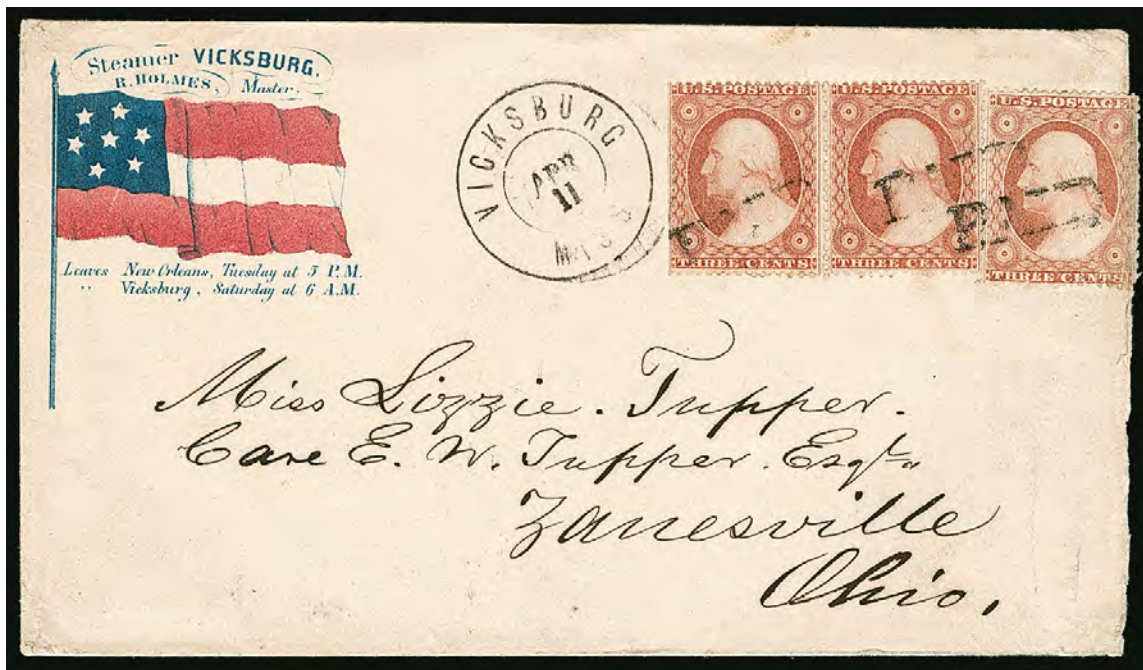 Steamer VICKSBURG.
R. HOLMES, Master.
Leaves New Orleans, Tuesday at 5 P.M.
" Vicksburg, Saturday at 6 A.M.
VICKSBURG
APR
11
MISS
U.S. POSTAGE
THREE CENTS
U.S. POSTAGE
THREE CENTS
U.S. POSTAGE
THREE CENTS
PAID
Miss Lizzie. Tupper.
Care E. W. Tupper. Esqr
Zanesville
Ohio.